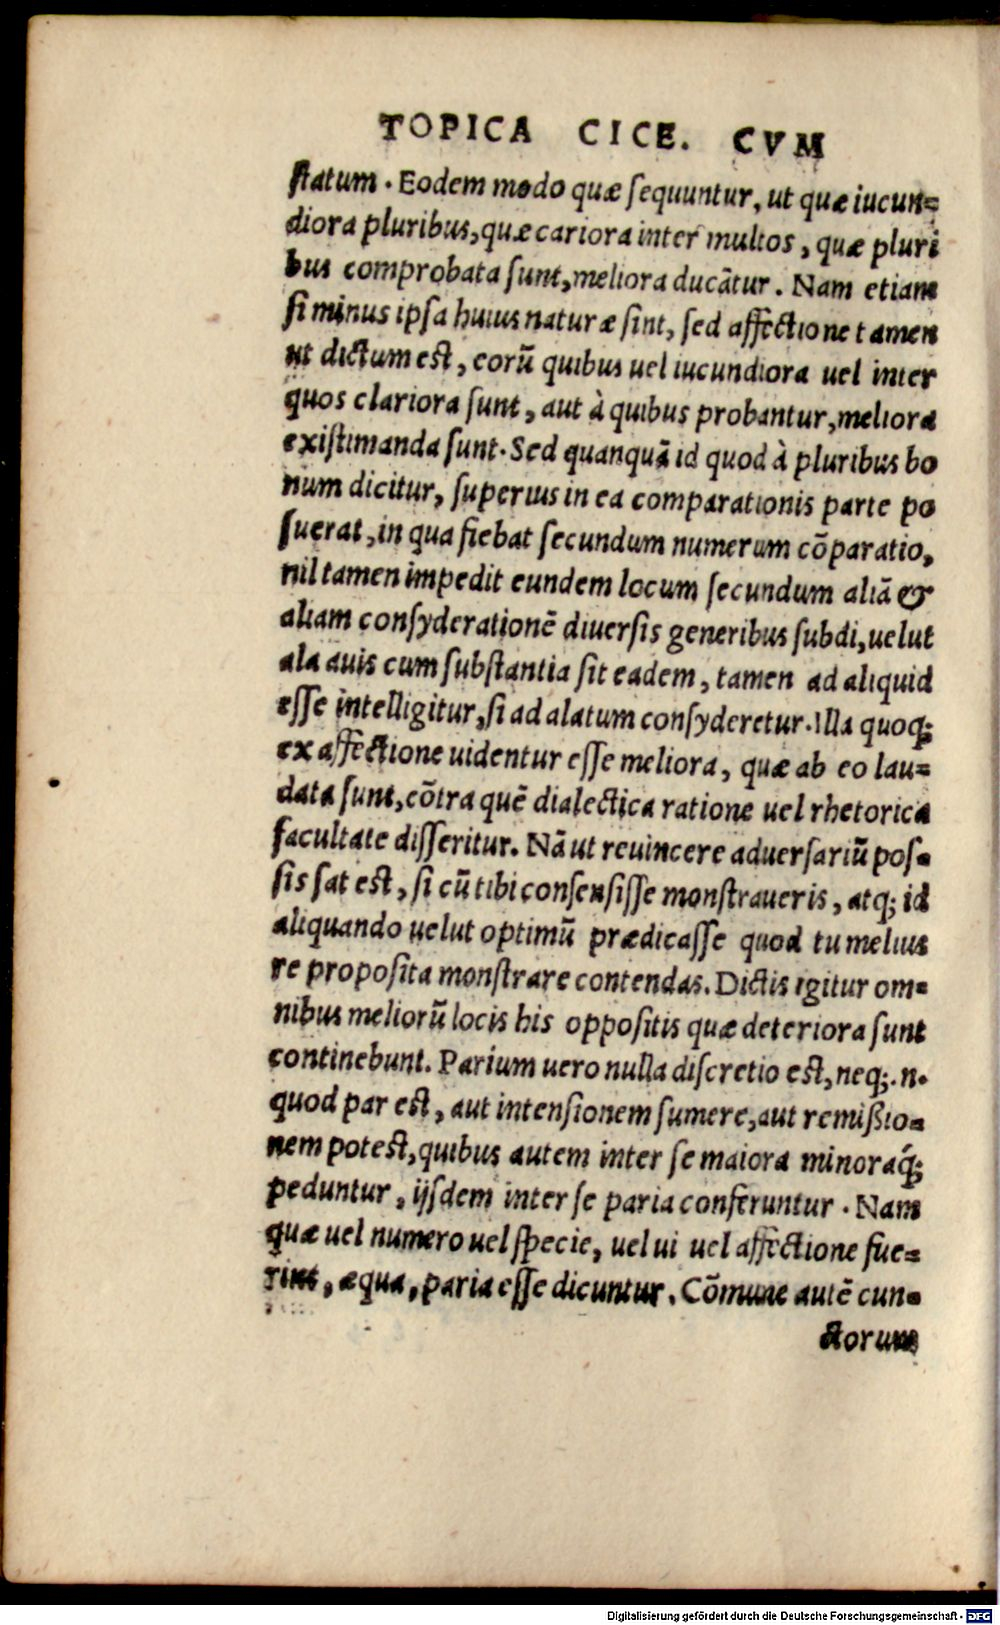 TOPICA CICE. CVM
ſtatum. Eodem modo quæ ſequuntur, ut quæ iucun=
diora pluribus, quæ cariora inter multos, quæ pluri
bus comprobata ſunt, meliora ducātur. Nam etiam
ſi minus ipſa huius naturæ ſint, ſed affectione tamen
ut dictum est, eorū quibus uel iucundiora uel inter
quos clariora ſunt, aut à quibus probantur, meliora
existimanda ſunt. Sed quanquā id quod à pluribus bo
num dicitur, ſuperius in ea comparationis parte po
ſuerat, in qua fiebat ſecundum numerum cōparatio,
nil tamen impedit eundem locum ſecundum aliā &
aliam conſyderationē diuerſis generibus ſubdi, uelut
ala auis cum ſubſtantia ſit eadem, tamen ad aliquid
eſſe intelligitur, ſi ad alatum conſyderetur. Illa quoq;
ex affectione uidentur eſſe meliora, quæ ab eo lau=
data ſunt, cōtra quē dialectica ratione uel rhetorica
facultate diſſeritur. Nā ut reuincere aduerſariū poſ=
ſis ſat est, ſi cū tibi conſenſiſſe monſtraueris, atq; id
aliquando uelut optimū prædicaſſe quod tu melius
re propoſita monſtrare contendas. Dictis igitur om=
nibus meliorū locis his oppoſitis quæ deteriora ſunt
continebunt. Parium uero nulla diſcretio est, neq;. n.
quod par est, aut intenſionem ſumere, aut remißio=
nem potest, quibus autem inter ſe maiora minoraq́;
peduntur, ijſdem inter ſe paria conferuntur. Nam
quæ uel numero uel ſpecie, uel ui uel affectione fue=
rint, æqua, paria eſſe dicuntur. Cōmune autē cun=
ctorum
Digitalisierung gefördert durch die Deutsche Forschungsgemeinschaft - DFG